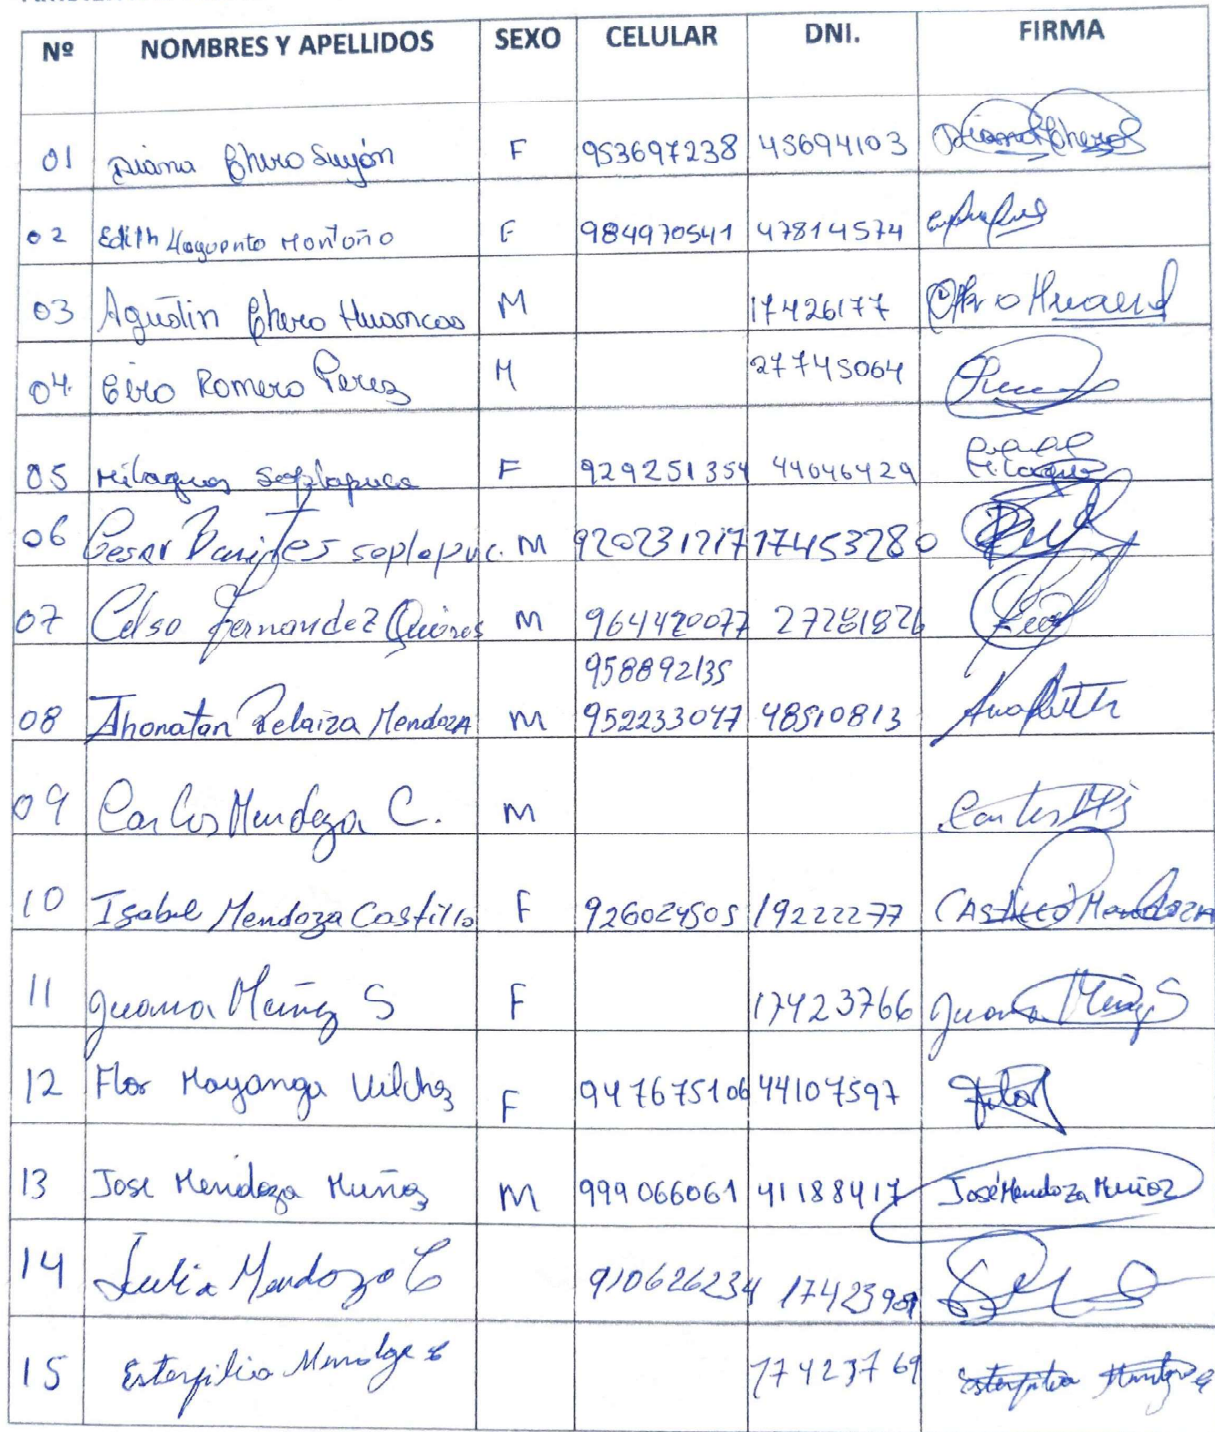 Nº NOMBRES Y APELLIDOS SEXO CELULAR DNI. FIRMA
01 Diana Chero Suyón F 953697238 45694103 Diana Chero S
02 Edith F 984970541 47814574
03 Agustin Chero Huancas M 17426177 Huancas
04. Ciro Romero Perez M 27745064
05 Milagros Soplapuco F 929251354 44046429 Milagros
06 Cesar Benites soplapuc. M 920231217 17453280
07 Celso Fernandez M 964420077 27281826
958892135
08 Jhonatan Pelaiza Mendoza M 952233047 48510813
09 Carlos Mendoza C. M Carlos
10 Isabel Mendoza Castillo F 926024505 19222277 CASTILLO Mendoza
11 Juana Muñoz S F 17423766 Juana Muñoz S
12 Flor Mayanga Vilchez F 947675106 44107597 Flor
13 Jose Mendoza Muñoz M 999066061 41188417 José Mendoza Muñoz
14 Julia Mendoza C 910626234
15 Esterfilia Mendoza C 17423769 Esterfilia